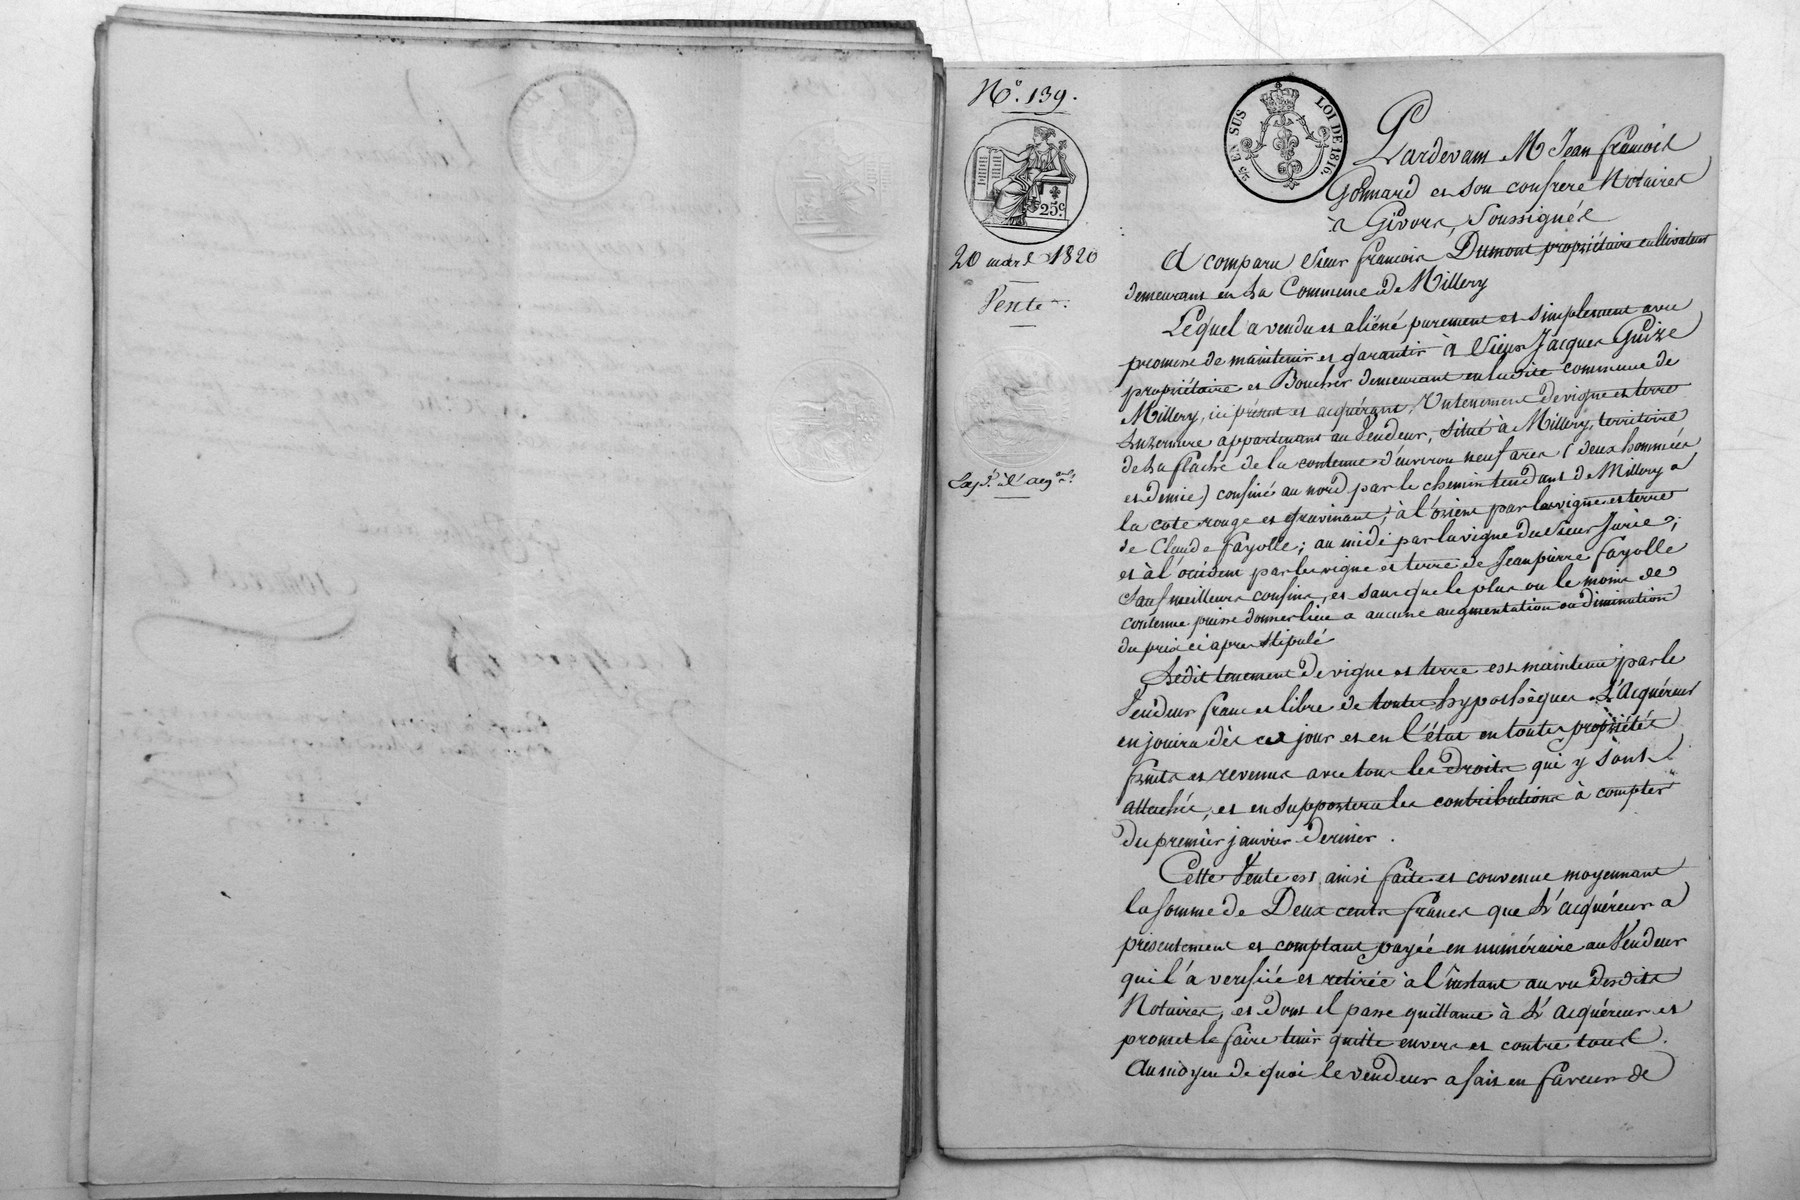 N.o 139.
25 EN SUS LOI DE 1816
25c.
20 mars 1820
Vente.
Exp. à l'acq.
Pardevant Me Jean francois
Gonnard et son confrere Notaires
à Givors, Soussignés
A comparu Sieur francois Dumont propriétaire cultivateur
demeurant en la Commune de Millery
Lequel a vendu et aliéné purement et simplement avec
promesse de maintenir et garantir à Sieur Jacques Guize
propriétaire et Boucher demeurant en ladite commune de
Millery, ici présent et acquérant, Un tenement de vigne et terre
Luzerniere appartenant au Vendeur, situé à Millery, territoire
de la flache de la contenue d'environ neuf ares (deux hommées
et demie) confiné au nord par le chemin tendant de Millery à
la cote rouge et gravinant; à l'orient par la vigne et terre
de Claude fayolle; au midi par la vigne du Sieur Jurie;
et à l'occident par les vigne et terre de Jean pierre fayolle
Sauf meilleurs confins, et sans que le plus ou le moins de
contenue puisse donner lieu a aucune augmentation ou diminution
du prix ci apres stipulé
Ledit tenement de vigne et terre est maintenu par le
Vendeur franc et libre de toutes hypothèques. L'Acquéreur
en jouira dès ce jour et en l'état en toutes propriétés
fruits et revenus avec tous les droits qui y sont
attachés, et en supportera les contributions à compter
du premier janvier dernier.
Cette Vente est ainsi faite et convenue moyennant
la somme de Deux cents francs que L'acquéreur a
présentement et comptant payée en numéraire au Vendeur
qui l'a verifiée et retirée à l'instant au vu desdits
Notaires, et dont il passe quittance à L'acquéreur et
promet le faire tenir quitte envers et contre tous.
Au moyen de quoi le vendeur a fait en faveur de